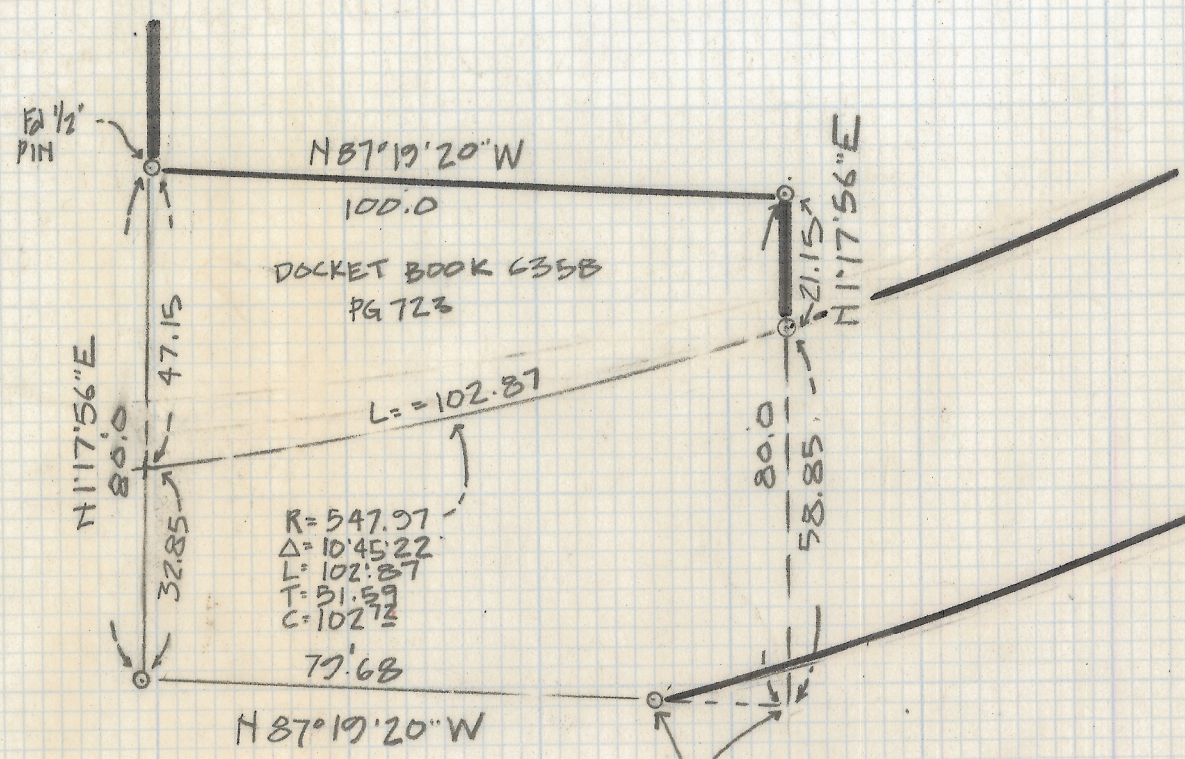 Fd 1/2"
PIN
N 87°19'20"W
100.0
N 1°17'56"E
21.15
DOCKET BOOK 6358
PG 723
47.15
N 1°17'56"E
80.0
L= = 102.87
80.0
58.85
32.85
R= 547.97
Δ= 10°45'22
L= 102.87
T= 51.59
C= 102.73
N 87°19'20"W